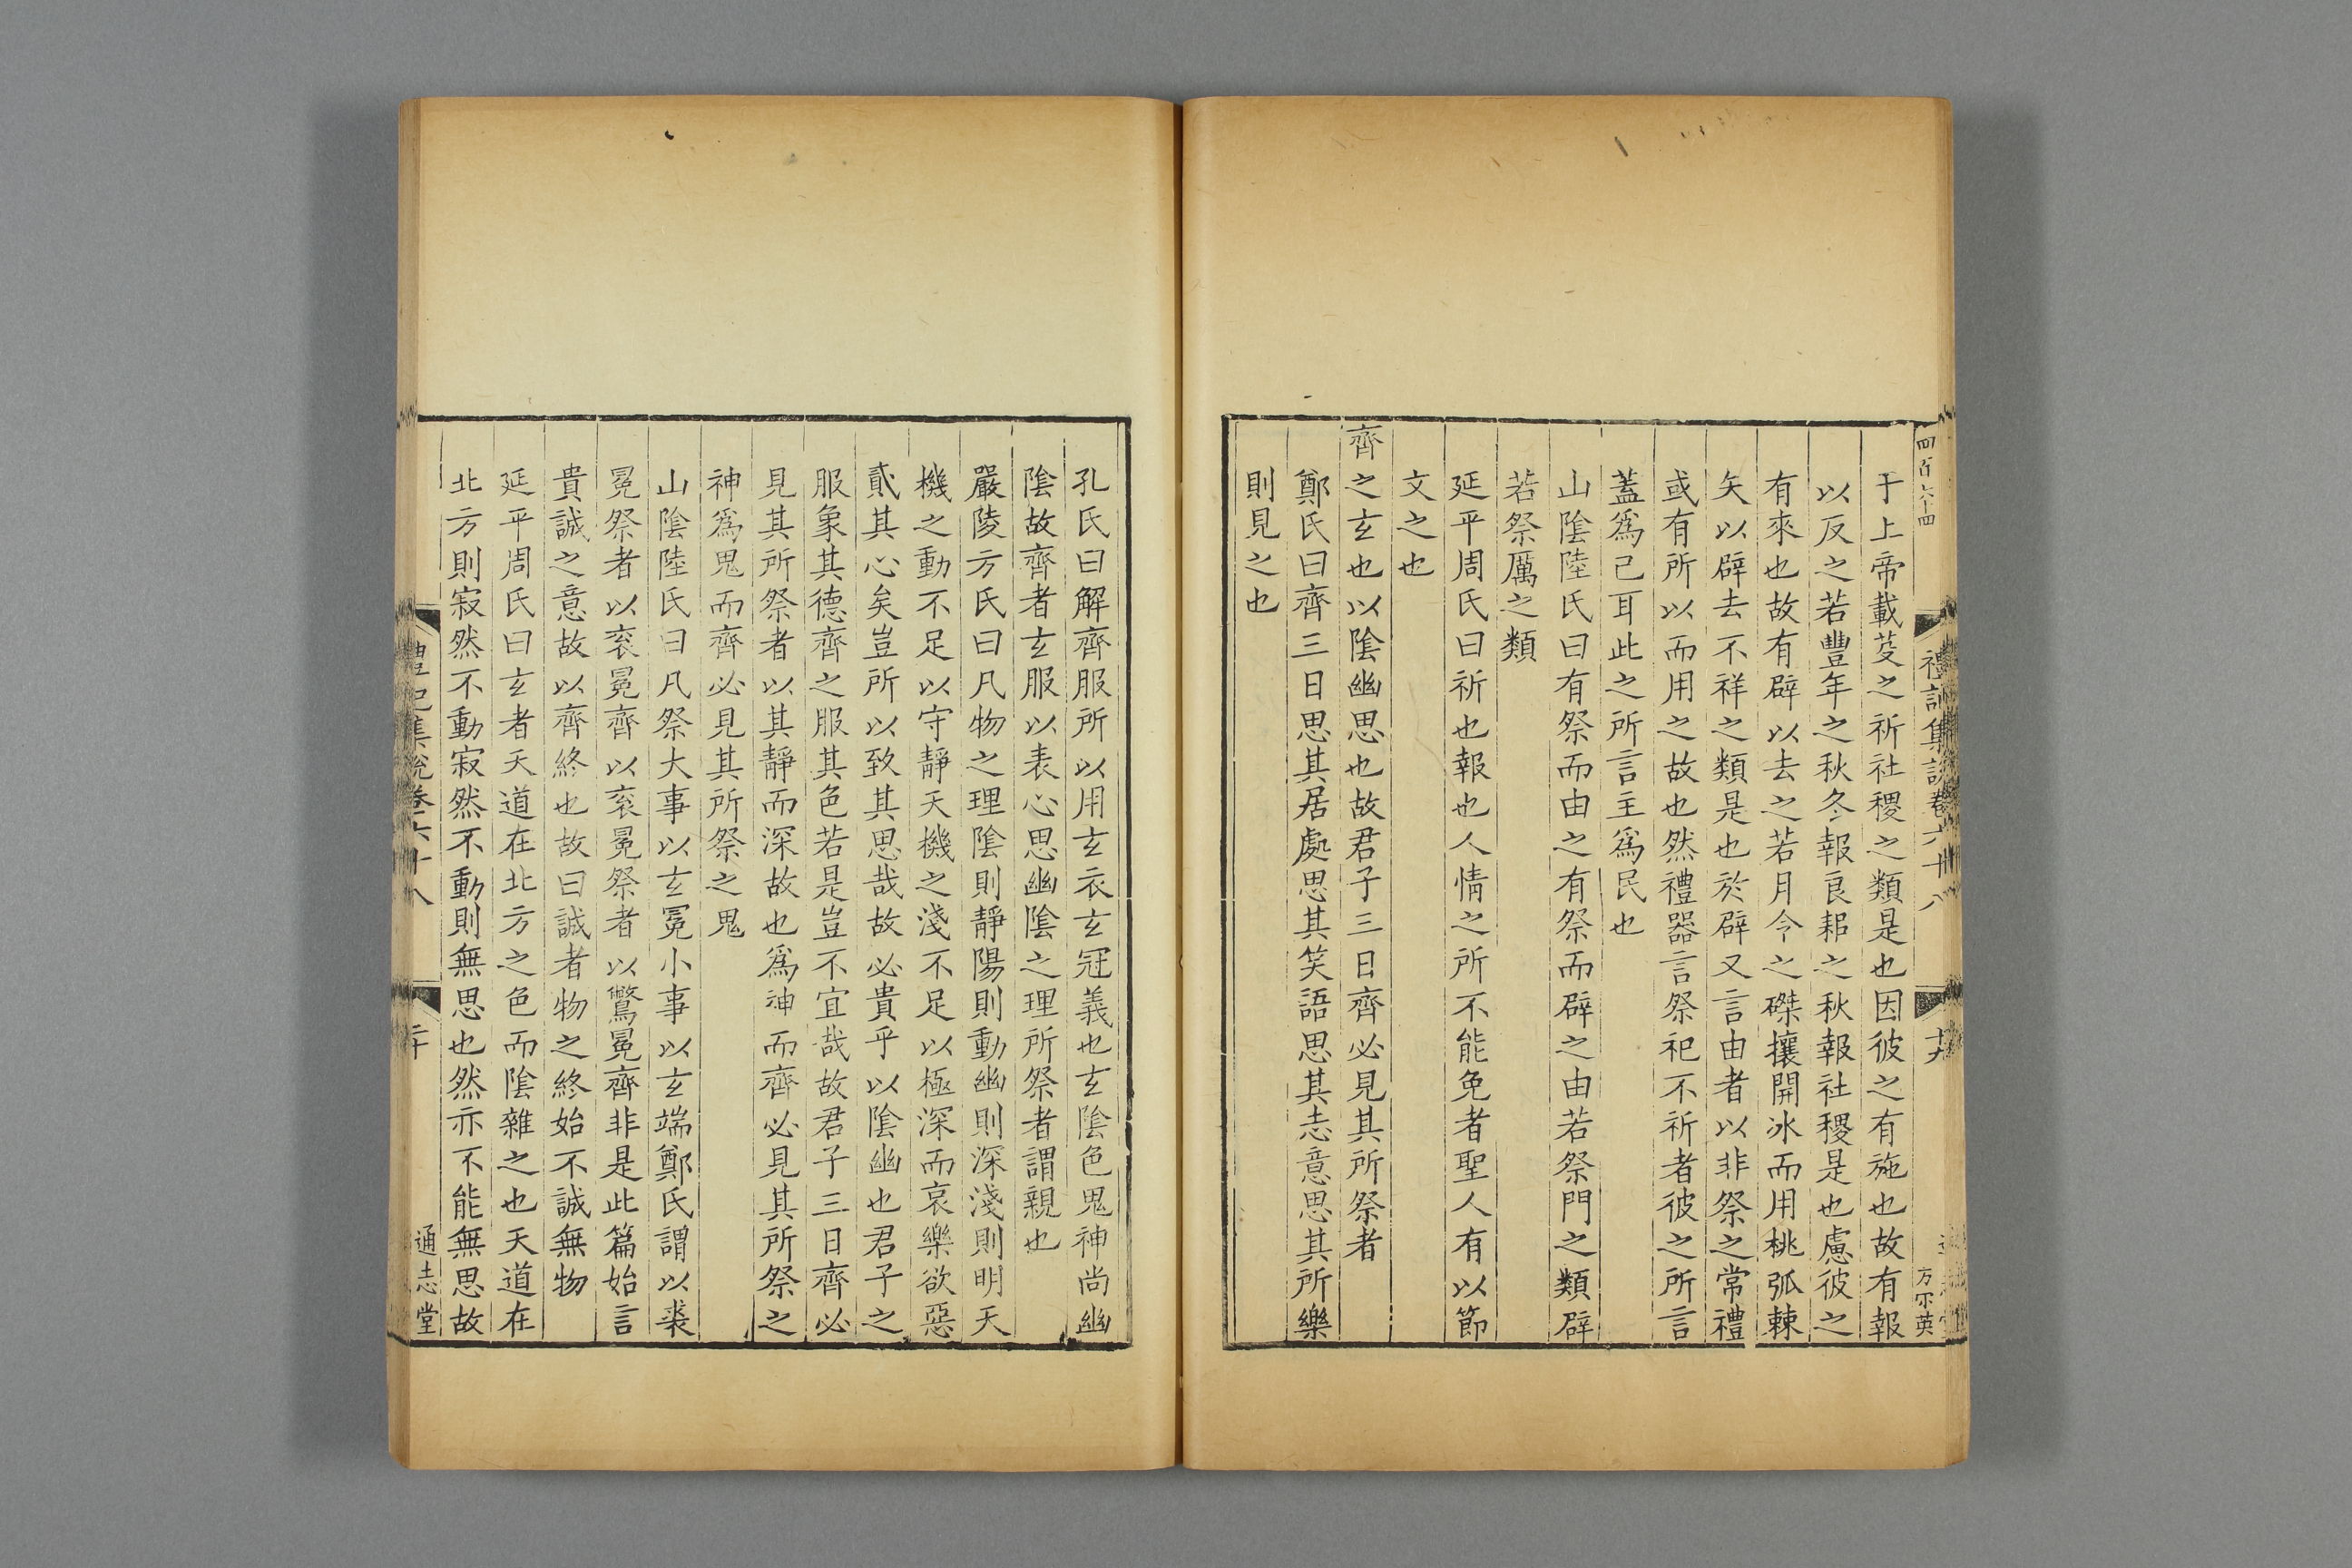 四百六十四
禮記集說卷六十八
十九
方字英
于上帝載芟之祈社稷之類是也因彼之有施也故有報
以反之若豐年之秋冬報良耜之秋報社稷是也慮彼之
有來也故有辟以去之若月令之磔攘開冰而用桃弧棘
矢以辟去不祥之類是也於辟又言由者以非祭之常禮
或有所以而用之故也然禮器言祭祀不祈者彼之所言
蓋爲己耳此之所言主爲民也
山陰陸氏曰有祭而由之有祭而辟之由若祭門之類辟
若祭厲之類
延平周氏曰祈也報也人情之所不能免者聖人有以節
文之也
齊之玄也以陰幽思也故君子三日齊必見其所祭者
鄭氏曰齊三日思其居處思其笑語思其志意思其所樂
則見之也
孔氏曰解齊服所以用玄衣玄冠義也玄陰色鬼神尚幽
陰故齊者玄服以表心思幽陰之理所祭者謂親也
嚴陵方氏曰凡物之理陰則靜陽則動幽則深淺則明天
機之動不足以守靜天機之淺不足以極深而哀樂欲惡
貳其心矣豈所以致其思哉故必貴乎以陰幽也君子之
服象其德齊之服其色若是豈不宜哉故君子三日齊必
見其所祭者以其靜而深故也爲神而齊必見其所祭之
神爲鬼而齊必見其所祭之鬼
山陰陸氏曰凡祭大事以玄冕小事以玄端鄭氏謂以裘
冕祭者以衮冕齊以衮冕祭者以鷩冕齊非是此篇始言
貴誠之意故以齊終也故曰誠者物之終始不誠無物
延平周氏曰玄者天道在北方之色而陰雜之也天道在
北方則寂然不動寂然不動則無思也然亦不能無思故
禮記集說卷六十八
二十
通志堂